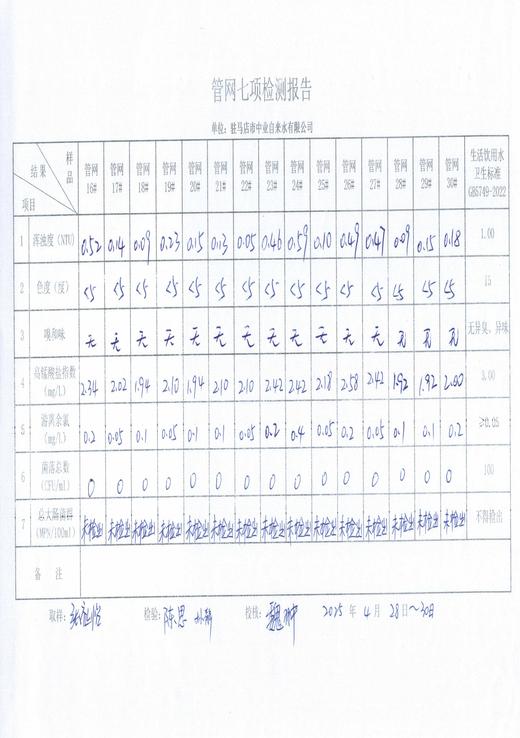 管网七项检测报告
单位：驻马店市中业自来水有限公司
结果 样品 项目 管网16# 管网17# 管网18# 管网19# 管网20# 管网21# 管网22# 管网23# 管网24# 管网25# 管网26# 管网27# 管网28# 管网29# 管网30# 生活饮用水卫生标准GB5749-2022
1 浑浊度（NTU） 0.52 0.14 0.09 0.23 0.15 0.13 0.05 0.46 0.59 0.10 0.49 0.47 0.09 0.15 0.18 1.00
2 色度（度） <5 <5 <5 <5 <5 <5 <5 <5 <5 <5 <5 <5 <5 <5 <5 15
3 嗅和味 无 无 无 无 无 无 无 无 无 无 无 无 无 无 无 无异臭、异味
4 高锰酸盐指数（mg/L） 2.34 2.02 1.94 2.10 1.94 2.10 2.10 2.42 2.42 2.18 2.58 2.42 1.92 1.92 2.00 3.00
5 游离余氯（mg/L） 0.2 0.05 0.1 0.05 0.1 0.1 0.05 0.2 0.4 0.05 0.2 0.05 0.1 0.1 0.2 ≥0.05
6 菌落总数（CFU/ml） 0 0 0 0 0 0 0 0 0 0 0 0 0 0 0 100
7 总大肠菌群（MPN/100ml） 未检出 未检出 未检出 未检出 未检出 未检出 未检出 未检出 未检出 未检出 未检出 未检出 未检出 未检出 未检出 不得检出
备 注
取样： 检验：陈思 校核：魏 2025 年 4 月 28日～30日